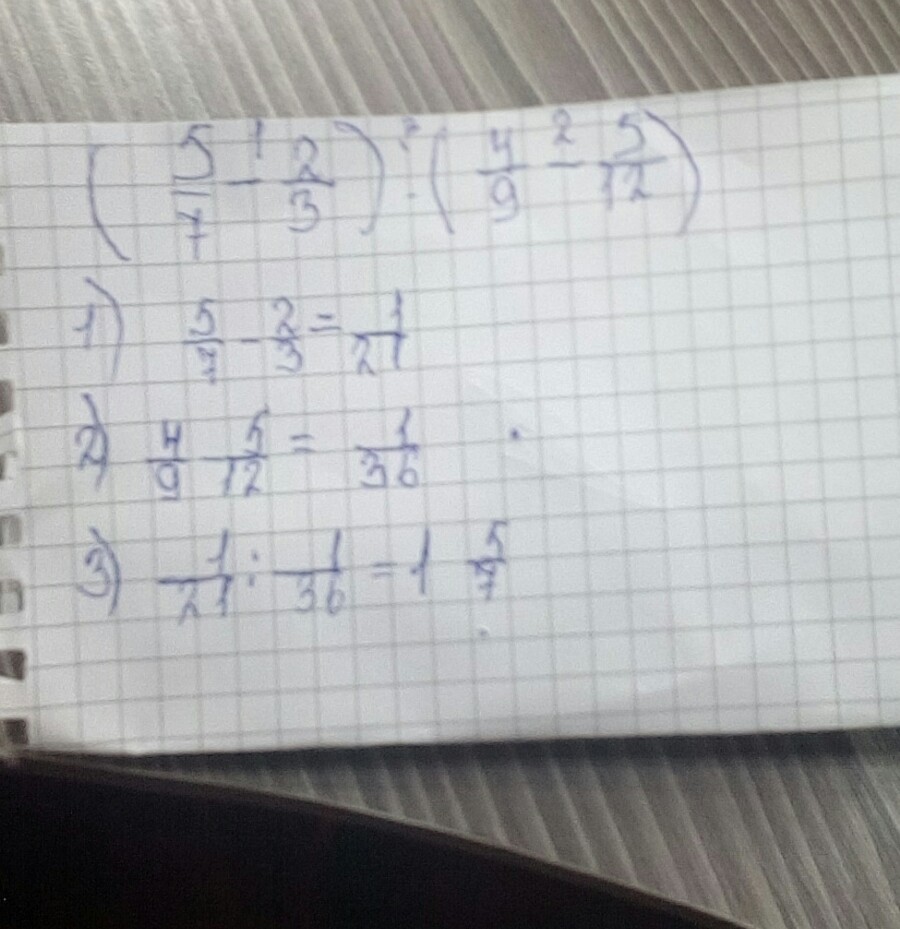 (5/7 - 2/3) : (4/9 - 5/12)
1 3 2
1) 5/7 - 2/3 = 1/21
2) 4/9 - 5/12 = 1/36
3) 1/21 : 1/36 = 1 5/7